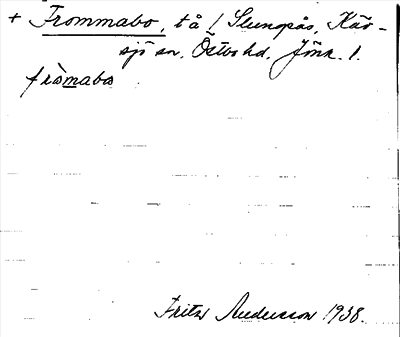 + Frommabo, t å [ Slungsås, Käv-
sjö sn. Östbo hd. Jönk. l.
fròmabo
Fritz Andersson 1938.